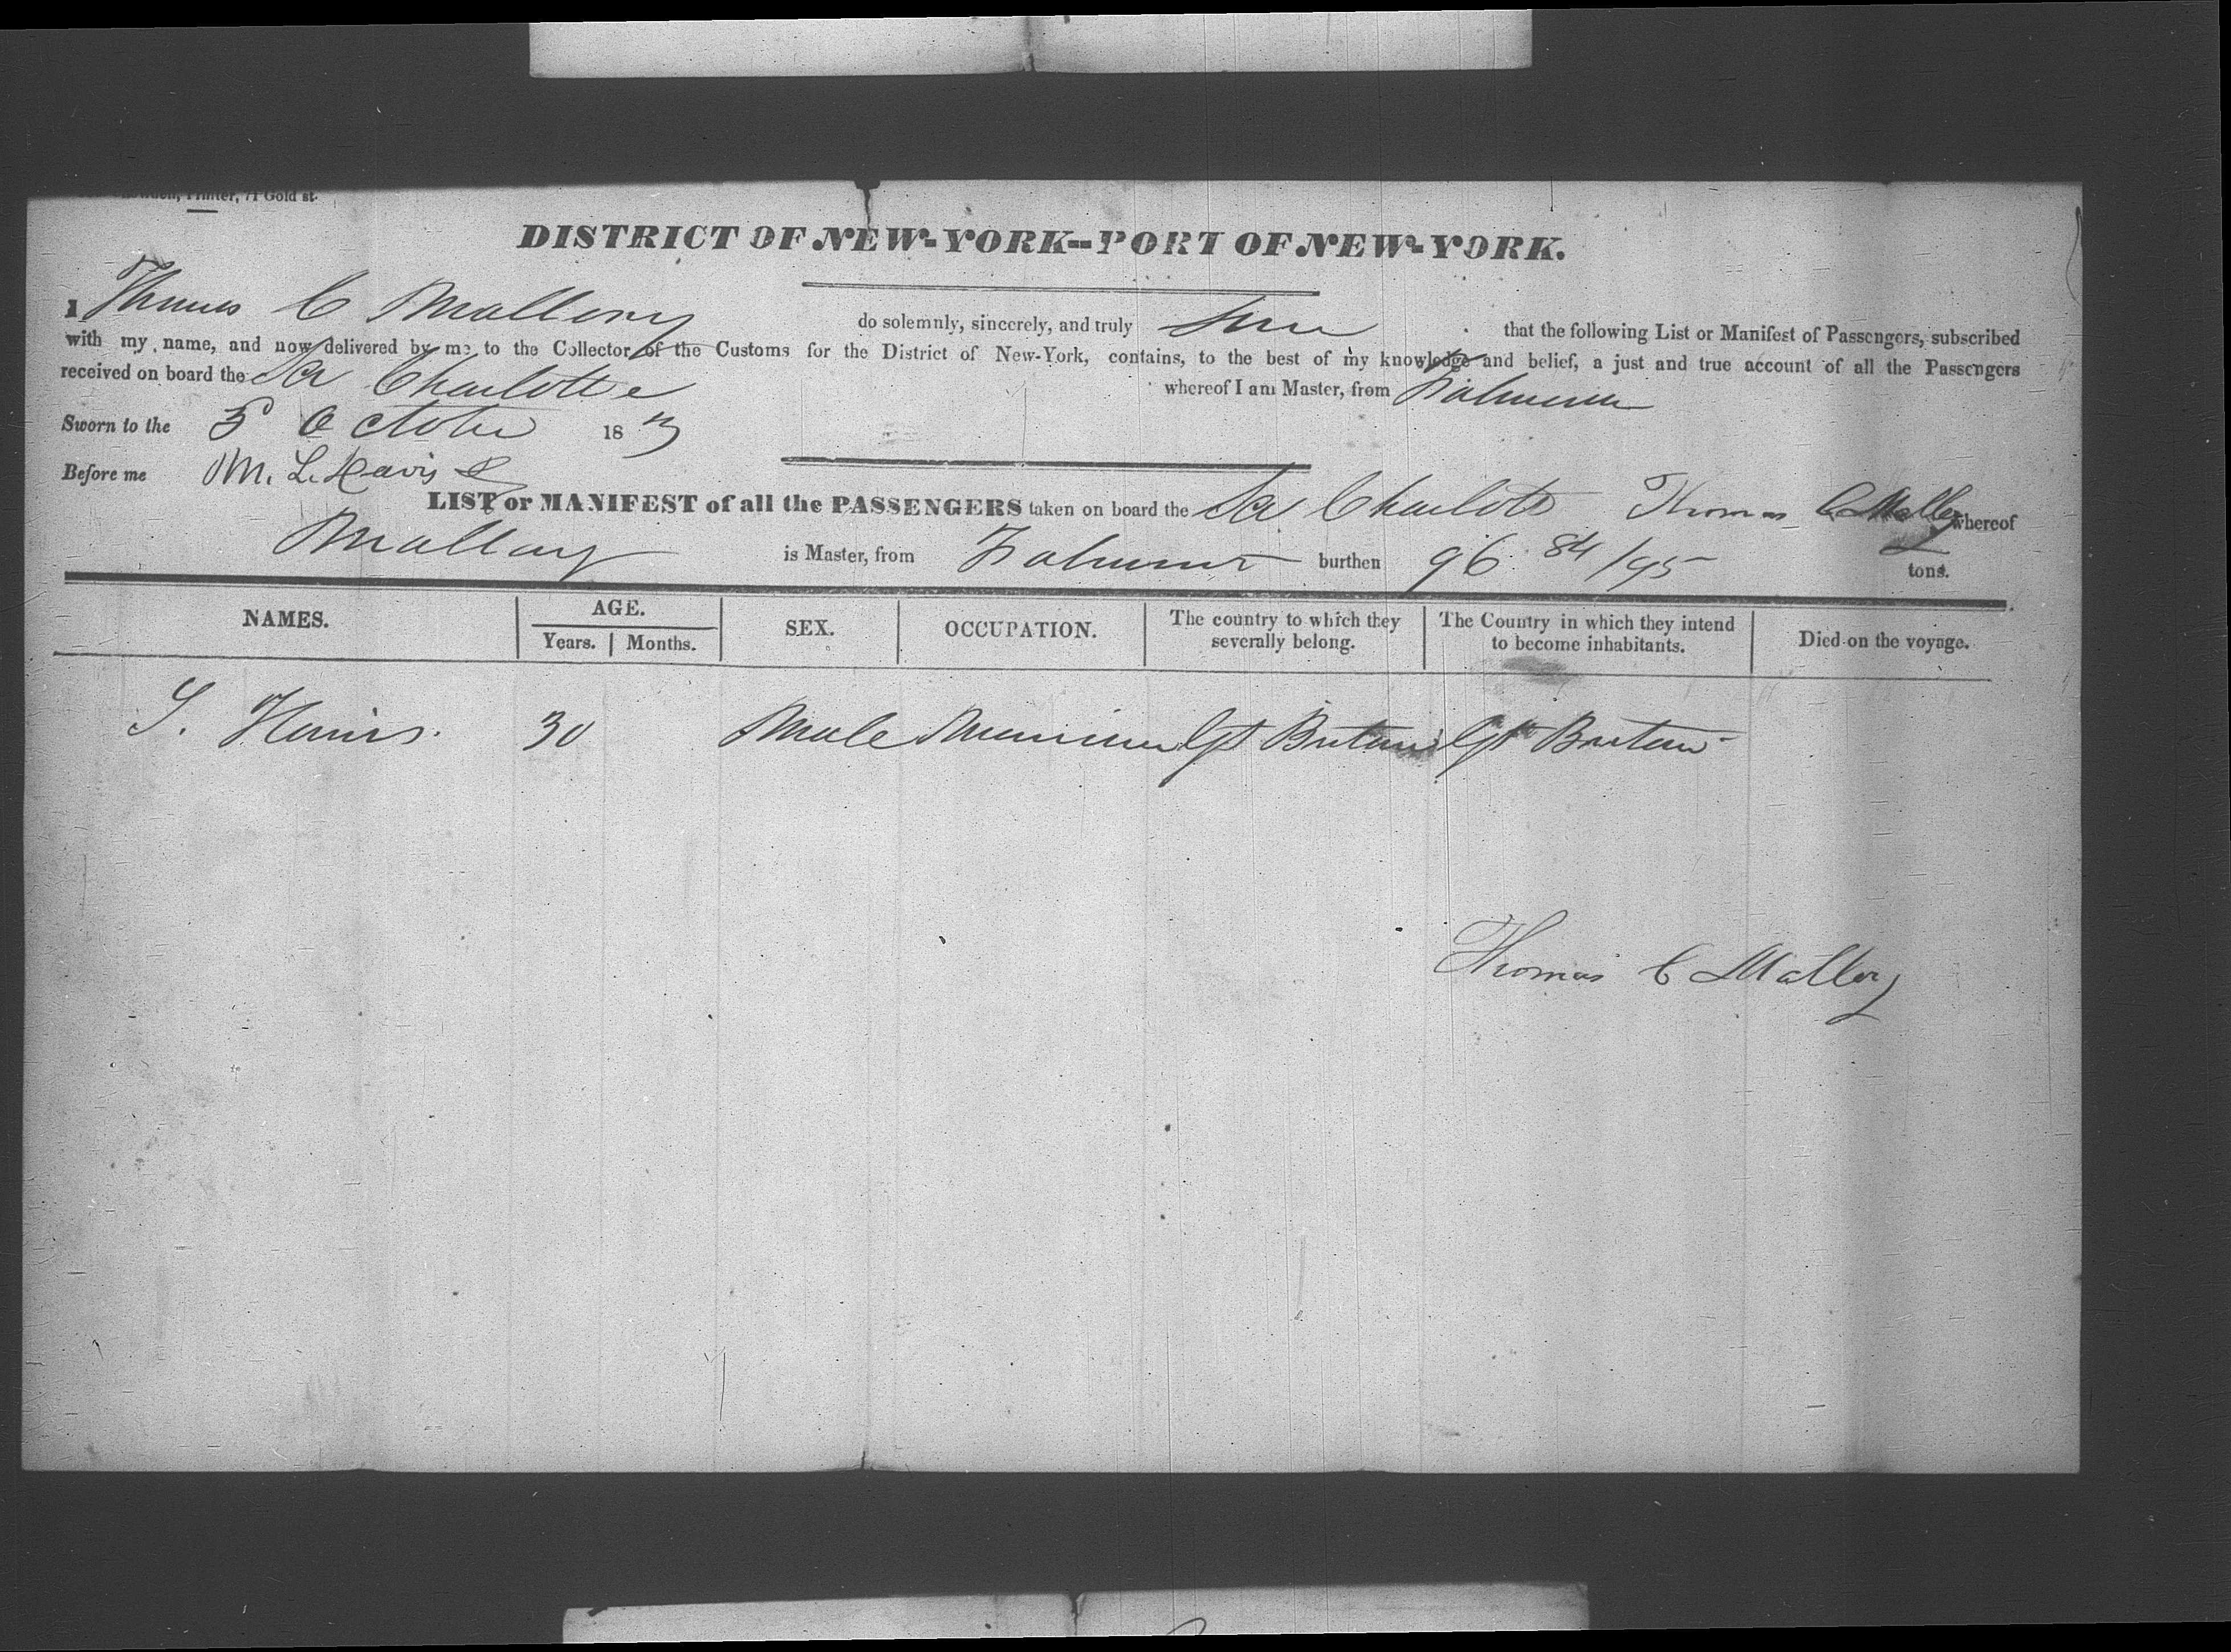 Printer, 71 Gold st.
DISTRICT OF NEW-YORK--PORT OF NEW-YORK.
I Thomas C Mallory do solemnly, sincerely, and truly that the following List or Manifest of Passengers, subscribed
with my name, and now delivered by me to the Collector of the Customs for the District of New-York, contains, to the best of my knowledge and belief, a just and true account of all the Passengers
received on board the Charlotte whereof I am Master, from
Sworn to the 5 October 183
Before me M. L. Davis
LIST or MANIFEST of all the PASSENGERS taken on board the Thomas C whereof
Mallory is Master, from burthen 96 84/95 tons.
NAMES. AGE. SEX. OCCUPATION. The country to which they severally belong. The Country in which they intend to become inhabitants. Died on the voyage.
Years. Months.
S. Harris. 30 Male Gt Britain Gt Britain
Thomas C Mallory